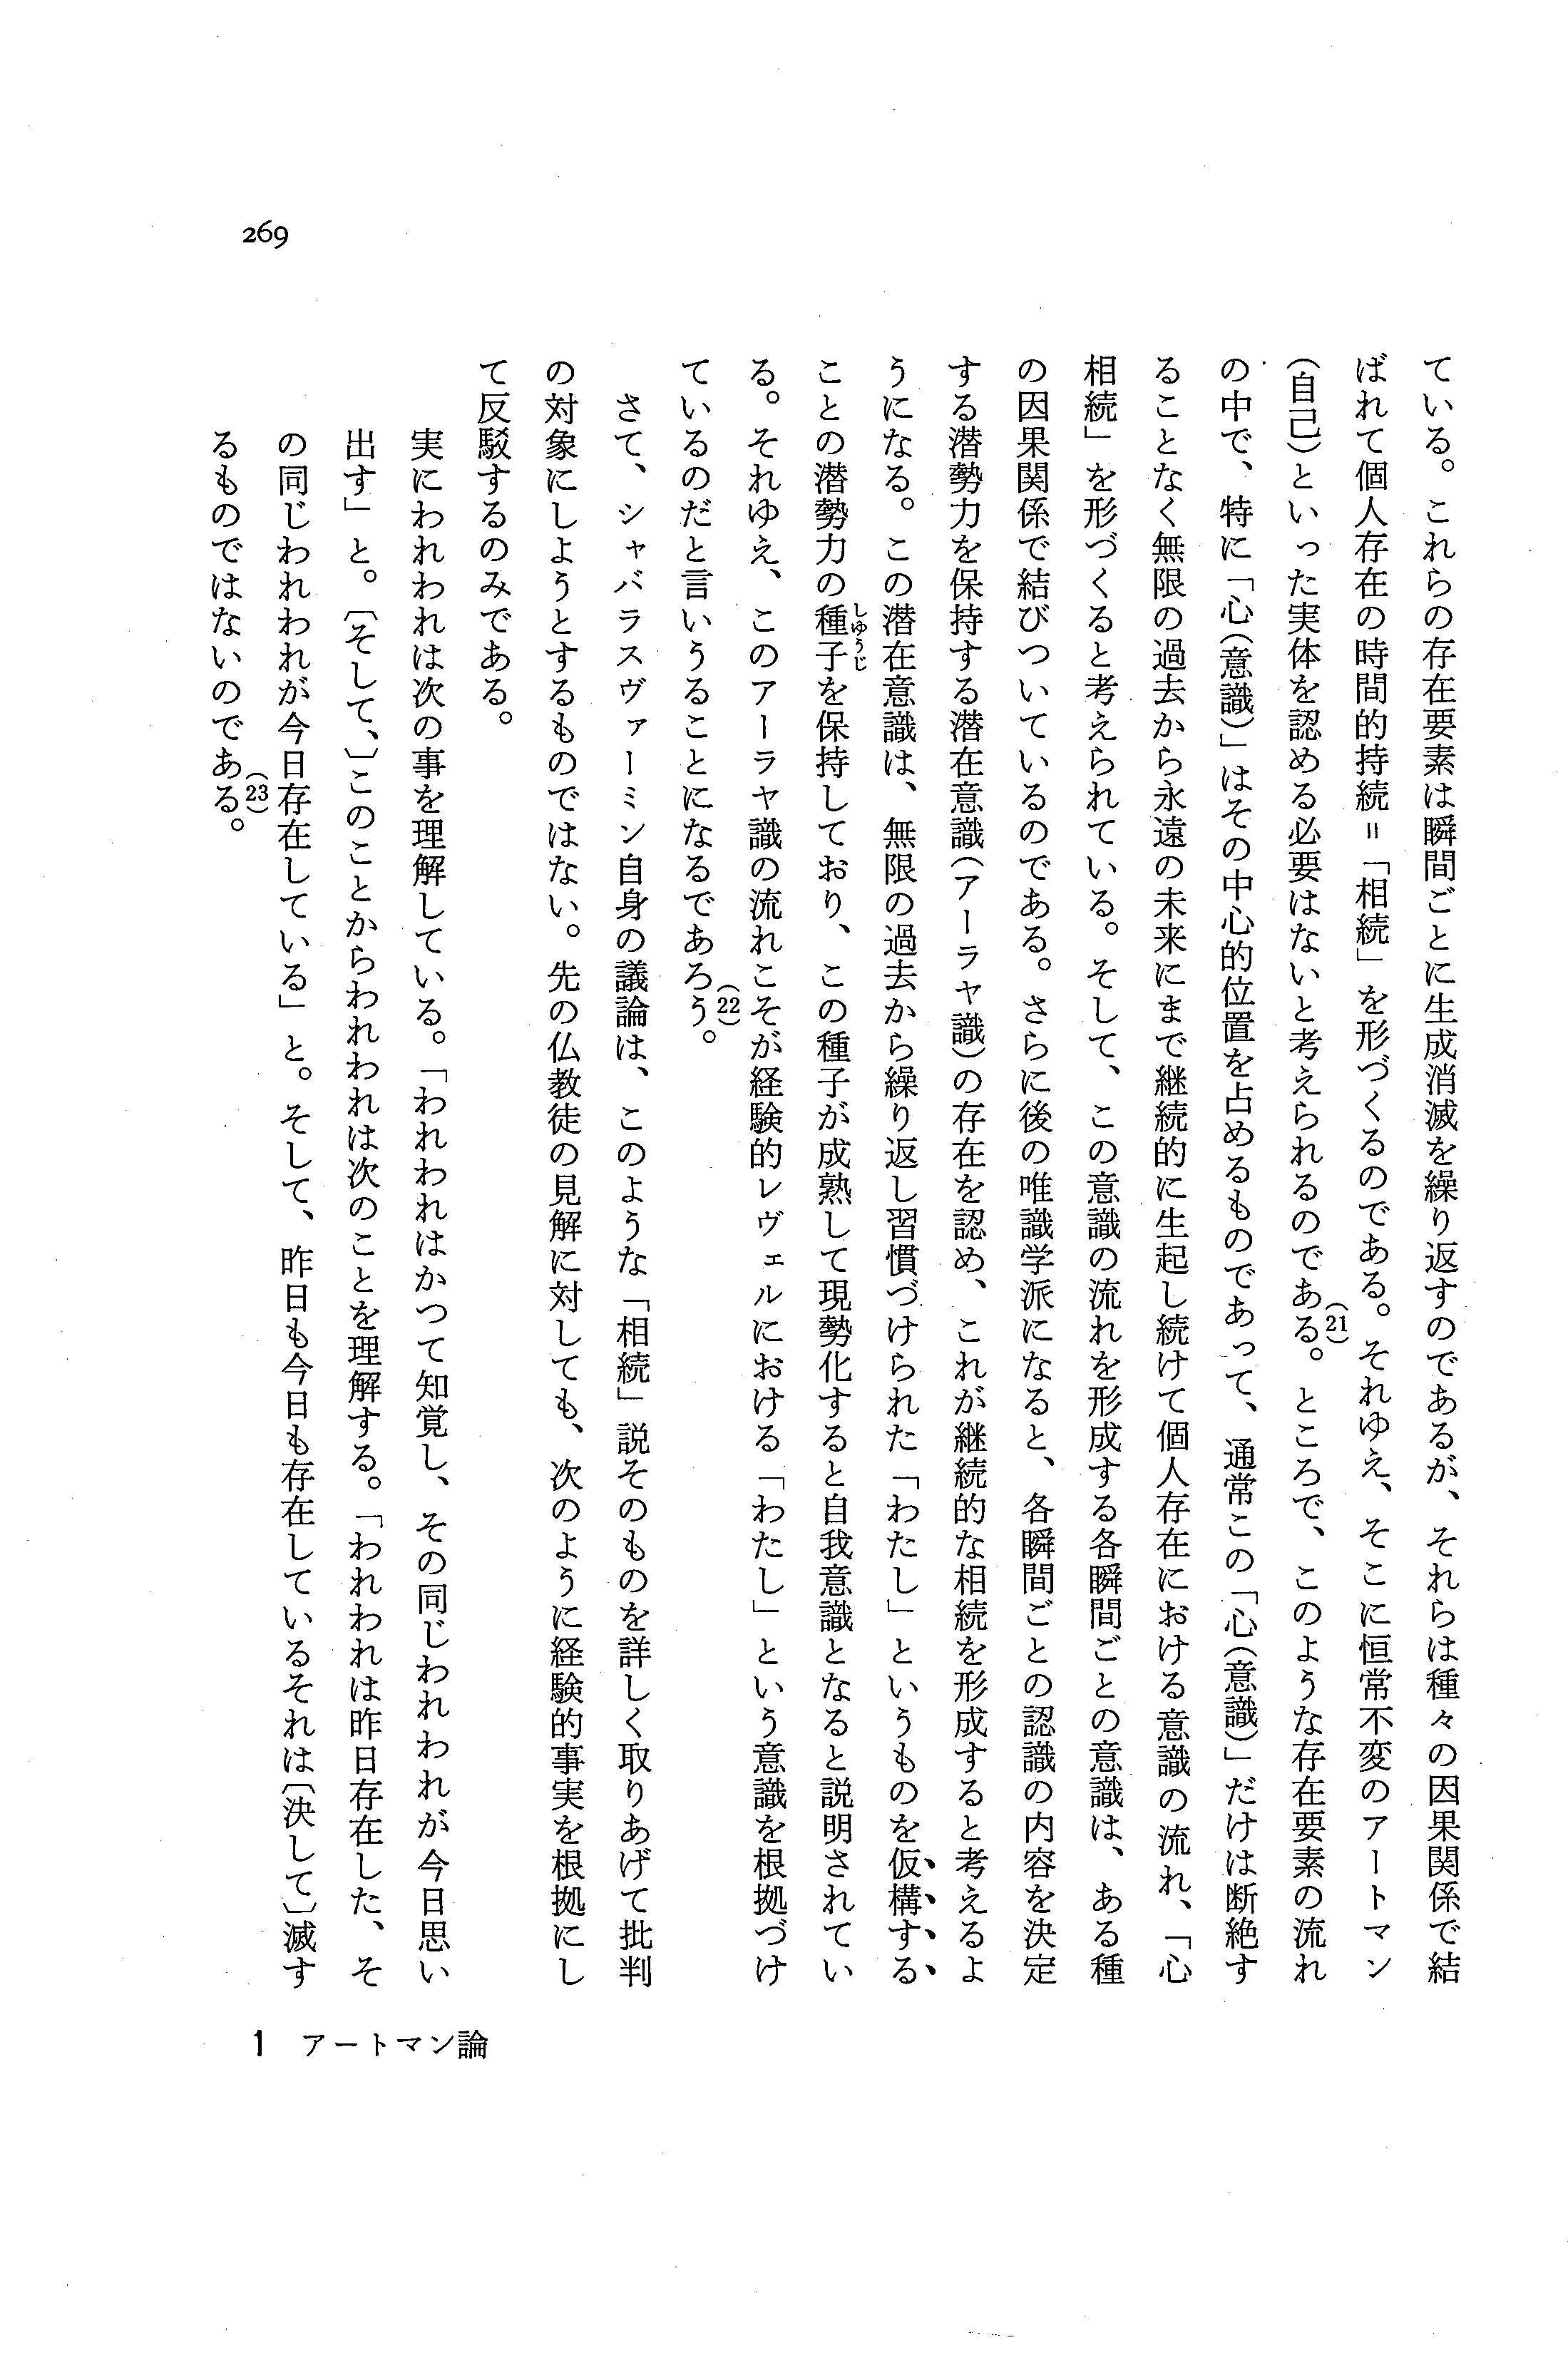 ている。これらの存在要素は瞬間ごとに生成消滅を繰り返すのであるが、それらは種々の因果関係で結
ばれて個人存在の時間的持続＝「相続」を形づくるのである。それゆえ、そこに恒常不変のアートマン
（自己）といった実体を認める必要はないと考えられるのである(21)。ところで、このような存在要素の流れ
の中で、特に「心（意識）」はその中心的位置を占めるものであって、通常この「心（意識）」だけは断絶す
ることなく無限の過去から永遠の未来にまで継続的に生起し続けて個人存在における意識の流れ、「心
相続」を形づくると考えられている。そして、この意識の流れを形成する各瞬間ごとの意識は、ある種
の因果関係で結びついているのである。さらに後の唯識学派になると、各瞬間ごとの認識の内容を決定
する潜勢力を保持する潜在意識（アーラヤ識）の存在を認め、これが継続的な相続を形成すると考えるよ
うになる。この潜在意識は、無限の過去から繰り返し習慣づけられた「わたし」というものを仮構する
ことの潜勢力の種子しゆうじを保持しており、この種子が成熟して現勢化すると自我意識となると説明されてい
る。それゆえ、このアーラヤ識の流れこそが経験的レヴェルにおける「わたし」という意識を根拠づけ
ているのだと言いうることになるであろう(22)。
さて、シャバラスヴァーミン自身の議論は、このような「相続」説そのものを詳しく取りあげて批判
の対象にしようとするものではない。先の仏教徒の見解に対しても、次のように経験的事実を根拠にし
て反駁するのみである。
実にわれわれは次の事を理解している。「われわれはかつて知覚し、その同じわれわれが今日思い
出す」と。〔そして、〕このことからわれわれは次のことを理解する。「われわれは昨日存在した、そ
の同じわれわれが今日存在している」と。そして、昨日も今日も存在しているそれは〔決して〕滅す
るものではないのである(23)。
1 アートマン論
269